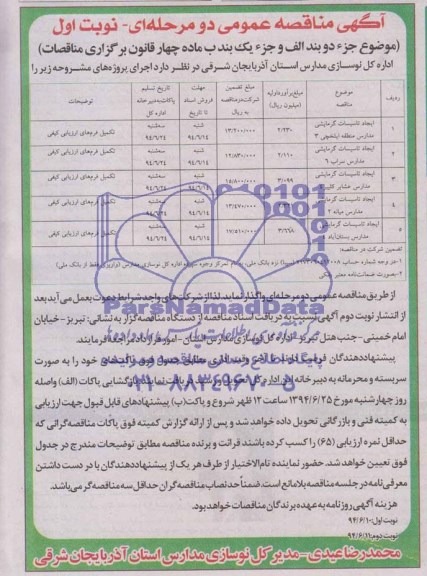 آگهی مناقصه عمومی دو مرحله‌ای- نوبت اول
(موضوع جزء دو بند الف و جزء یک بند ب ماده چهار قانون برگزاری مناقصات)
اداره کل نوسازی مدارس استان آذربایجان شرقی در نظر دارد اجرای پروژه‌های مشروحه زیر را
ردیف موضوع مناقصه مبلغ برآورد اولیه (میلیون ریال) مبلغ تضمین شرکت در مناقصه به ریال مهلت فروش اسناد تا تاریخ تاریخ تسلیم پاکات به دبیرخانه اداره کل توضیحات
۱ ایجاد تاسیسات گرمایشی مدارس منطقه ایلخچی ۳ ۲/۲۳۰ ۱۳/۲۰۰/۰۰۰ شنبه ۹۴/۶/۱۴ سه‌شنبه ۹۴/۶/۲۴ تکمیل فرم‌های ارزیابی کیفی
۲ ایجاد تاسیسات گرمایشی مدارس سراب ۶ ۲/۱۱۰ ۱۲/۸۳۰/۰۰۰ شنبه ۹۴/۶/۱۴ سه‌شنبه ۹۴/۶/۲۴ تکمیل فرم‌های ارزیابی کیفی
۳ ایجاد تاسیسات گرمایشی مدارس عشایر ۳/۰۹۹ ۱۵/۸۰۰/۰۰۰ شنبه ۹۴/۶/۱۴ سه‌شنبه ۹۴/۶/۲۴ تکمیل فرم‌های ارزیابی کیفی
ایجاد تاسیسات گرمایشی مدارس میانه ۲ ۱۳/۴۷۰/۰۰۰ شنبه ۹۴/۶/۱۴ سه‌شنبه ۹۴/۶/۲۴ تکمیل فرم‌های ارزیابی کیفی
۵ ایجاد تاسیسات گرمایشی مدارس بستان‌آباد ۱۷/۵۱۰/۰۰۰ شنبه ۹۴/۶/۱۴ سه‌شنبه ۹۴/۶/۲۴ تکمیل فرم‌های ارزیابی کیفی
تضمین شرکت در مناقصه:
۱-در وجه شماره حساب نزد بانک ملی، بنام تمرکز وجوه سپرده اداره کل نوسازی مدارس (واریزی فقط از بانک ملی)
۲-بصورت ضمانت‌نامه معتبر بانکی
از طریق مناقصه عمومی دو مرحله‌ای واگذار نماید. لذا از شرکت‌های واجد شرایط دعوت بعمل می‌آید بعد
از انتشار نوبت دوم آگهی نسبت به دریافت اسناد مناقصه از دستگاه مناقصه‌گزار به نشانی: تبریز- خیابان
امام خمینی- جنب هتل تبریز- اداره کل نوسازی مدارس استان- امور قراردادها مراجعه فرمایند.
پیشنهاددهندگان فرصت دارند تا آخر وقت اداری مطابق جدول فوق پاکت‌های خود را به صورت
سربسته و محرمانه به دبیرخانه این اداره کل تحویل و رسید دریافت نمایند. بازگشایی پاکات (الف) واصله
روز چهارشنبه مورخ ۱۳۹۴/۶/۲۵ ساعت ۱۲ ظهر شروع و پاکت (ب) پیشنهادهای قابل قبول جهت ارزیابی
به کمیته فنی و بازرگانی تحویل داده خواهد شد و پس از ارائه گزارش کمیته فوق پاکات مناقصه‌گرانی که
حداقل نمره ارزیابی (۶۵) را کسب کرده باشند قرائت و برنده مناقصه مطابق توضیحات مندرج در جدول
فوق تعیین خواهد شد. حضور نماینده تام‌الاختیار از طرف هر یک از پیشنهاددهندگان با در دست داشتن
معرفی‌نامه در جلسه مناقصه بلامانع است. ضمناً حد نصاب مناقصه‌گران حداقل سه مناقصه‌گر می‌باشد.
هزینه آگهی روزنامه به عهده برندگان مناقصات خواهد بود.
نوبت اول: ۹۴/۶/۱۰
نوبت دوم: ۹۴/۶/۱۱
محمدرضا عیدی- مدیر کل نوسازی مدارس استان آذربایجان شرقی
ParsNamadData